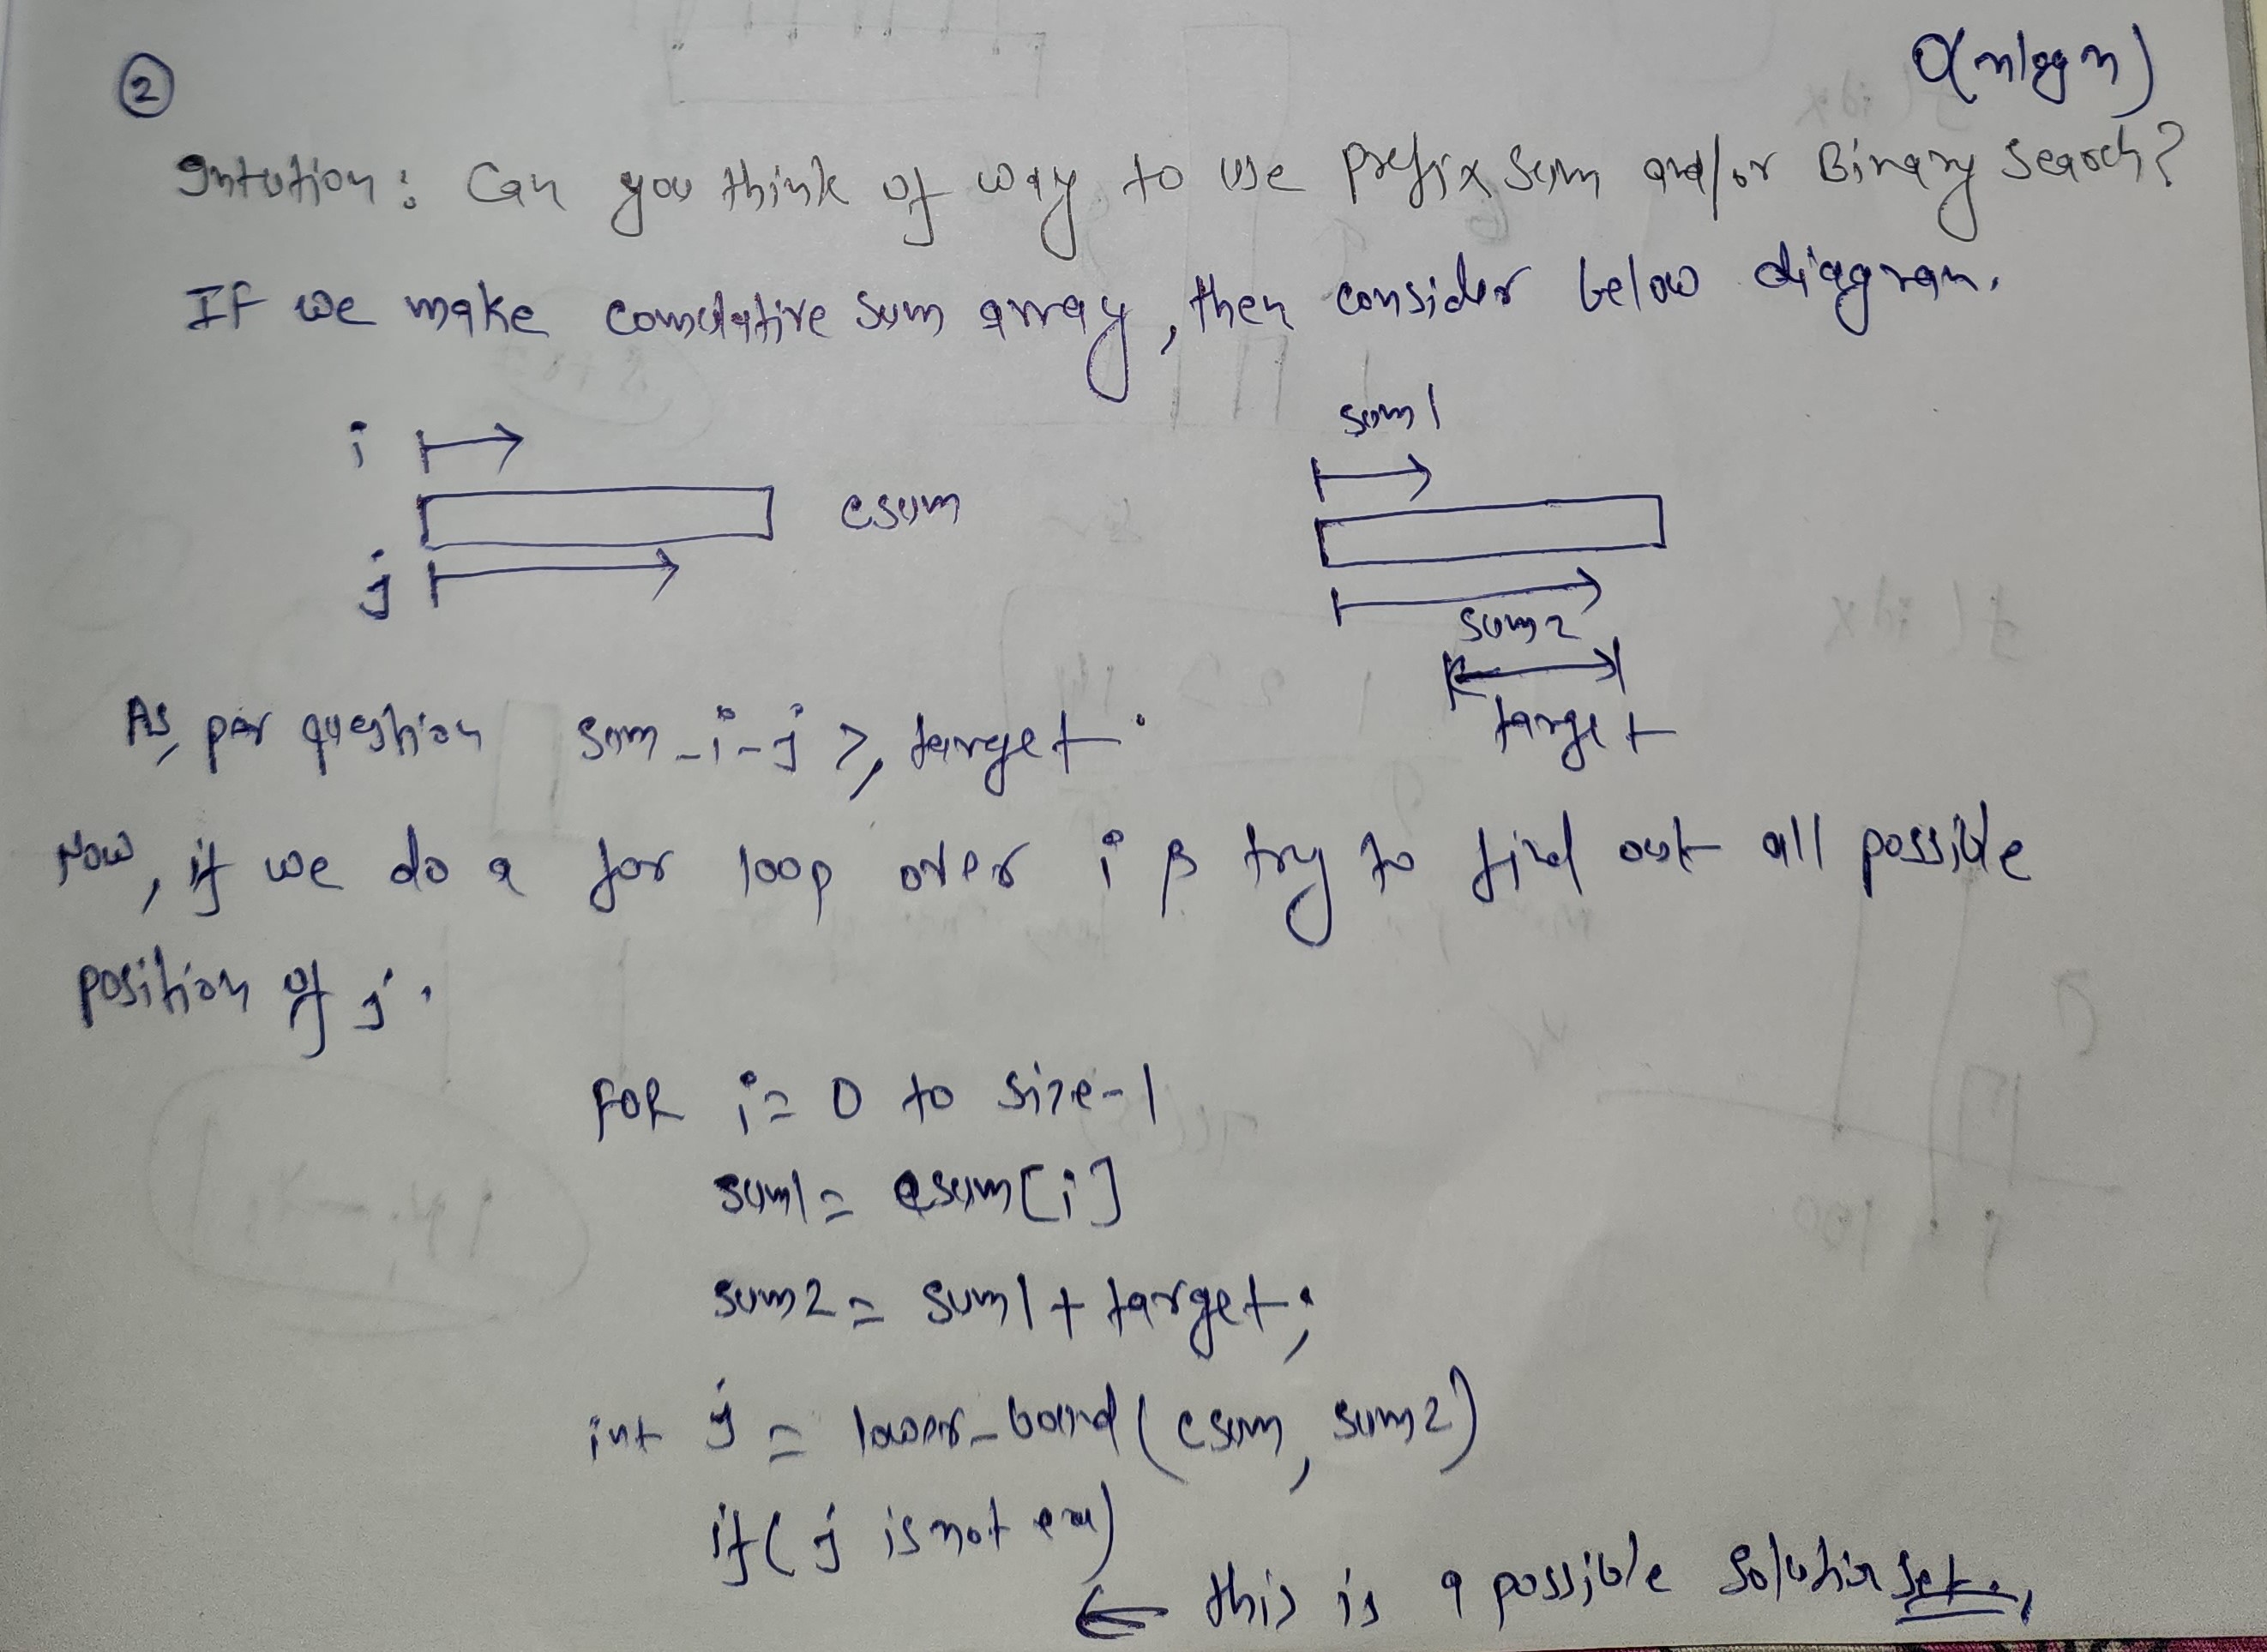 ②
O(nlogn)
Intution: Can you think of way to use prefix sum and/or Binary Search?
If we make comulative sum array, then consider below diagram.
sum1
i
csum
j
sum2
target
As per question sum_i-j >, target.
Now, if we do a for loop over i & try to find out all possible
position of j.
FOR i= 0 to size-1
sum1= csum[i]
sum2= sum1+target;
int j = lower_bound(csum, sum2)
if( j is not end)
← this is a possible solution set.